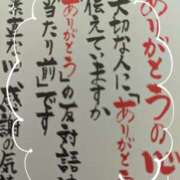 ありがとうの心
大切な人に「ありがと
伝えていますか
ありがとうの反対語は
当たり前」です
感謝の気持